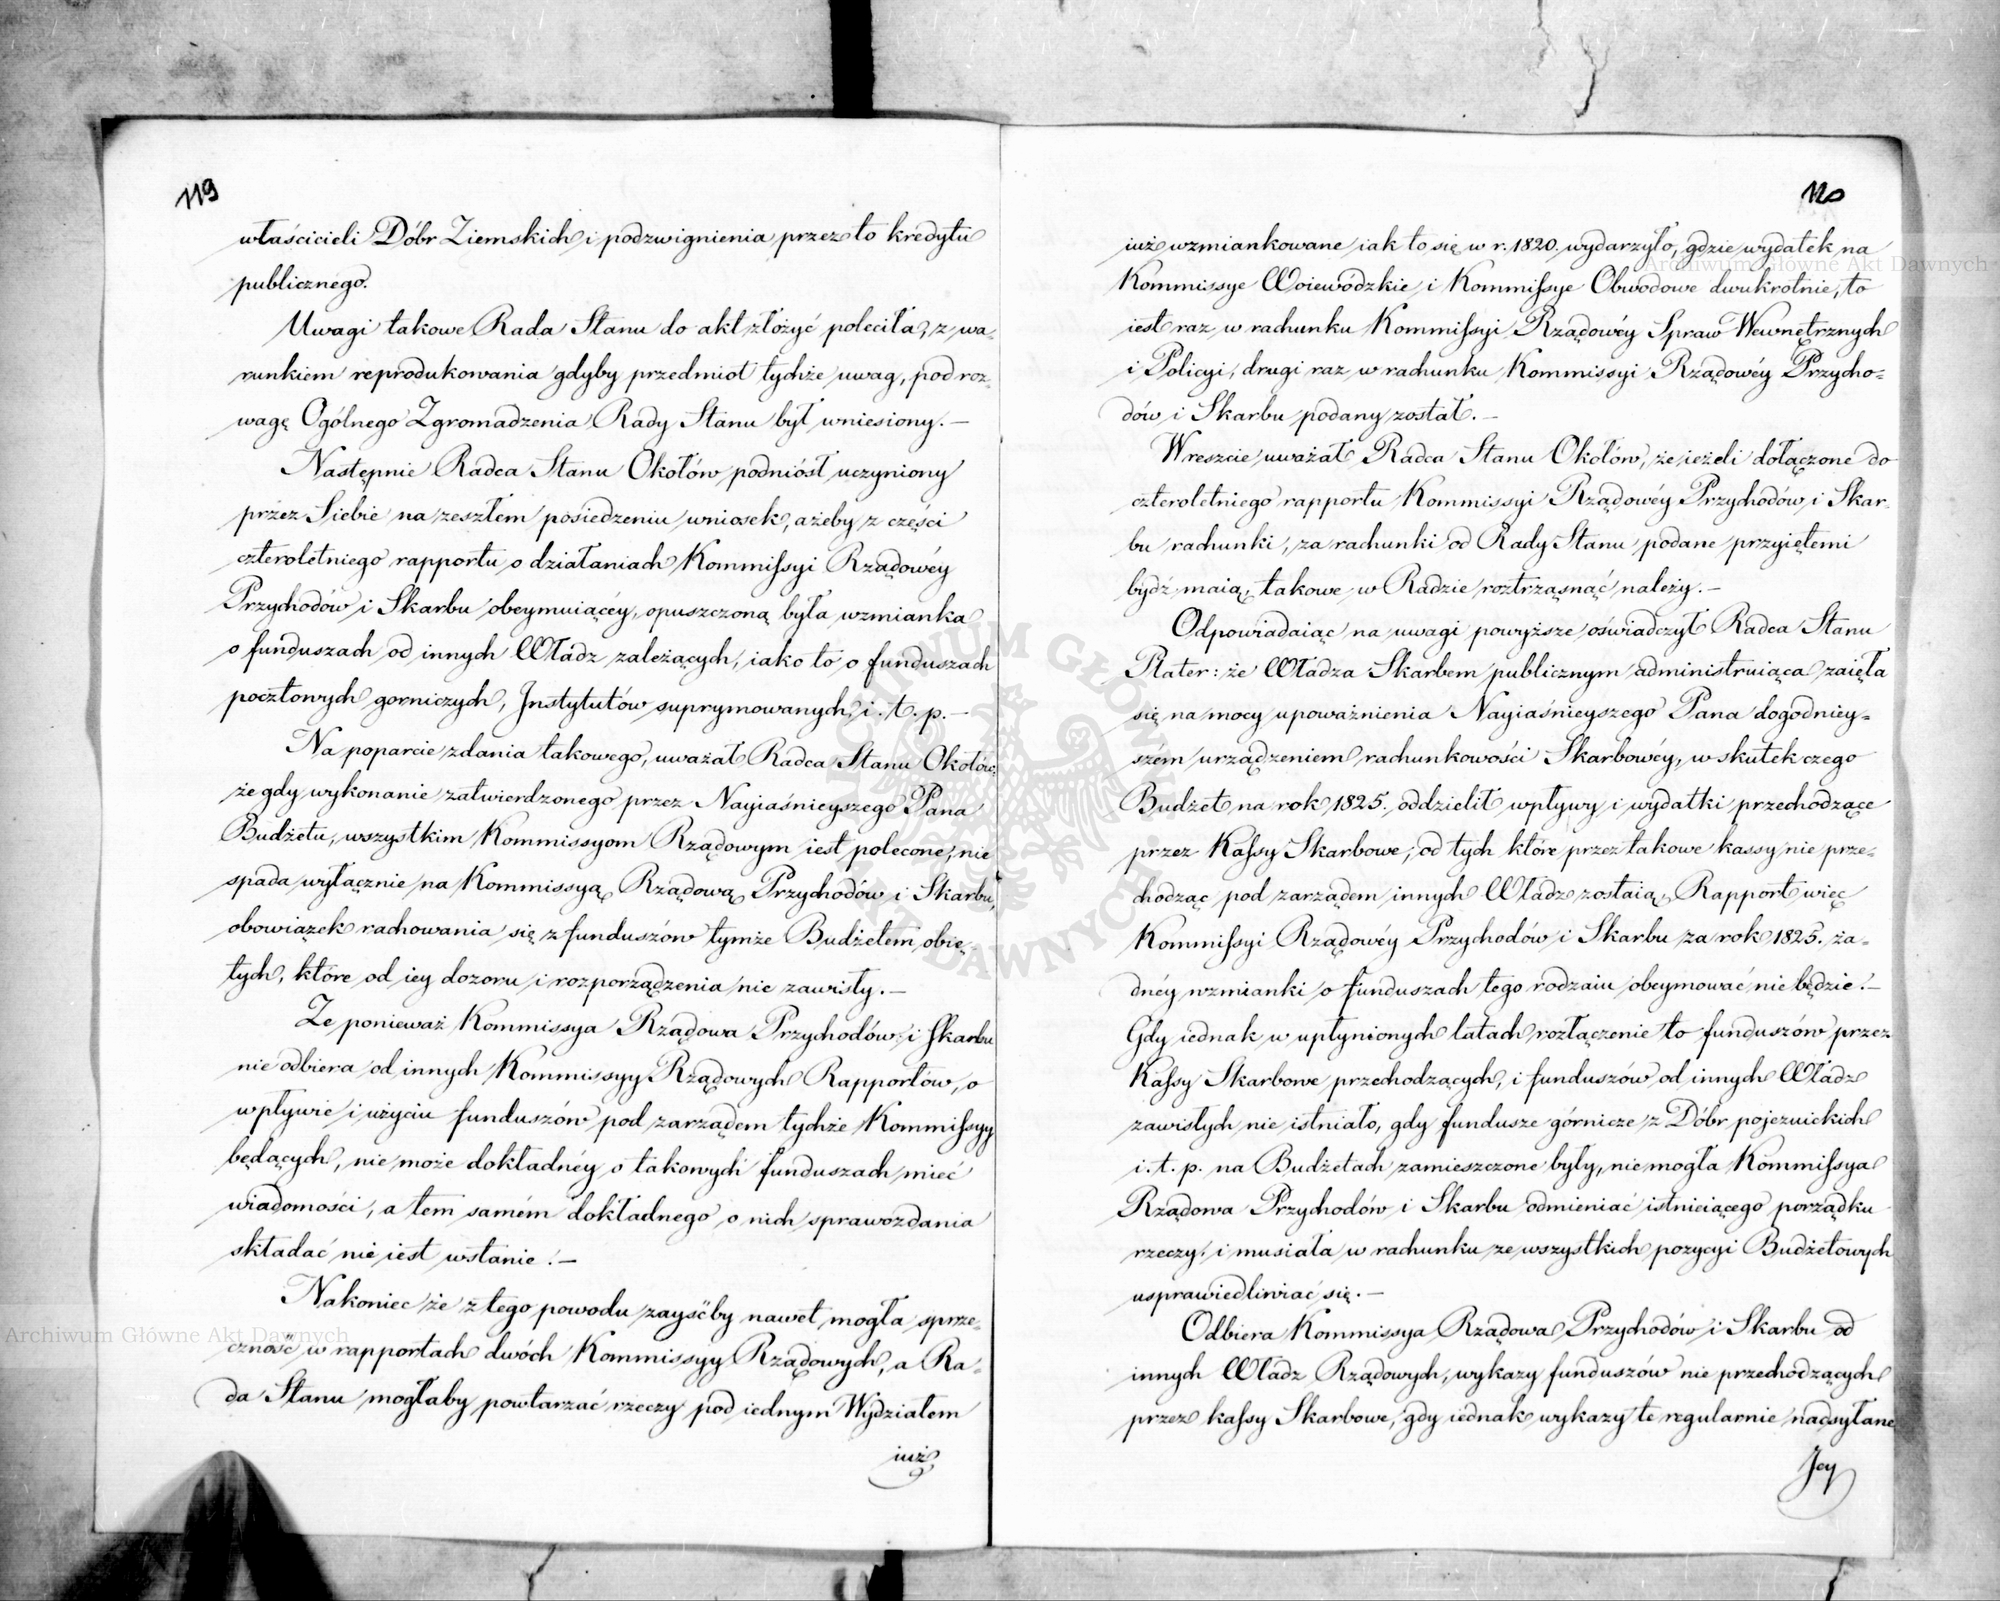 119
właścicieli Dóbr Ziemskich i podzwignienia przez to kredytu
publicznego.
Uwagi takowe Rada Stanu do akt złożyć poleciła, z wa-
runkiem reprodukowania gdyby przedmiot tychże uwag, pod roz-
wagę Ogólnego Zgromadzenia Rady Stanu był wniesiony.—
Następnie Radca Stanu Okołów podniósł uczyniony
przez Siebie na zeszłem posiedzeniu wniosek, ażeby z części
czteroletniego rapportu o działaniach Kommissyi Rządowéy
Przychodów i Skarbu obeymuiącéy, opuszczoną była wzmianka
o funduszach od innych Władz zależących, iako to o funduszach
pocztowych gorniczych, Instytutów suprymowanych, i. t. p.—
Na poparcie zdania takowego, uważał Radca Stanu Okołów,
że gdy wykonanie zatwierdzonego przez Nayiaśnieyszego Pana
Budżetu, wszystkim Kommissyom Rządowym iest polecone, nie
spada wyłącznie na Kommissyą Rządową Przychodów i Skarbu,
obowiązek rachowania się z funduszów tymże Budżetem obię-
tych, które od iey dozoru i rozporządzenia nie zawisły.—
Ze ponieważ Kommissya Rządowa Przychodów i Skarbu
nie odbiera od innych Kommissyy Rządowych Rapportów, o
wpływie i użyciu funduszów pod zarządem tychże Kommissyy
będących, nie może dokładnéy o takowych funduszach mieć
wiadomości, a tem samém dokładnego o nich sprawozdania
składać nie iest wstanie.—
Nakoniec że z tego powodu zayśćby nawet mogła sprze-
czność w rapportach dwóch Kommissyy Rządowych, a Ra-
da Stanu mogłaby powtarzać rzeczy pod iednym Wydziałem
iuż
120
iuż wzmiankowane iak to się w r. 1820. wydarzyło, gdzie wydatek na
Kommissye Woiewódzkie i Kommissye Obwodowe dwukrotnie, to
iest raz w rachunku Kommissyi Rządowéy Spraw Wewnętrznych
i Policyi, drugi raz w rachunku Kommissyi Rządowéy Przycho-
dów i Skarbu podany został.—
Wreszcie uważał Radca Stanu Okołów, że ieżeli dołączone do
czteroletniego rapportu Kommissyi Rządowéy Przychodów i Skar-
bu rachunki, za rachunki od Rady Stanu podane przyiętemi
bydź maią, takowe w Radzie roztrząsnąć należy.—
Odpowiadaiąc na uwagi powyższe oświadczył Radca Stanu
Plater: że Władza Skarbem publicznym administruiąca zaięła
się na mocy upoważnienia Nayiaśnieyszego Pana dogodniey-
szém urządzeniem rachunkowości Skarbowéy, w skutek czego
Budżet na rok 1825. oddzielił wpływy i wydatki przechodzące
przez Kassy Skarbowe, od tych które przez takowe kassy nie prze-
chodząc pod zarządem innych Władz zostaią. Rapport więc
Kommissyi Rządowéy Przychodów i Skarbu za rok 1825. ża-
dnéy wzmianki o funduszach tego rodzaiu obeymować nie będzie.—
Gdy iednak w upłynionych latach rozłączenie to funduszów przez
Kassy Skarbowe przechodzących, i funduszów od innych Władz
zawisłych nie istniało, gdy fundusze górnicze z Dóbr pojezuickich
i. t. p. na Budżetach zamieszczone były, nie mogła Kommissya
Rządowa Przychodów i Skarbu odmieniać istnieiącego porządku
rzeczy, i musiała w rachunku ze wszystkich pozycyi Budżetowych
usprawiedliwiać się.—
Odbiera Kommissya Rządowa Przychodów i Skarbu od
innych Władz Rządowych, wykazy funduszów nie przechodzących
przez kassy Skarbowe, gdy iednak wykazy te regularnie nadsyłane
Jey
Archiwum Główne Akt Dawnych
Archiwum Główne Akt Dawnych
ARCHIWUM GŁÓWNE AKT DAWNYCH